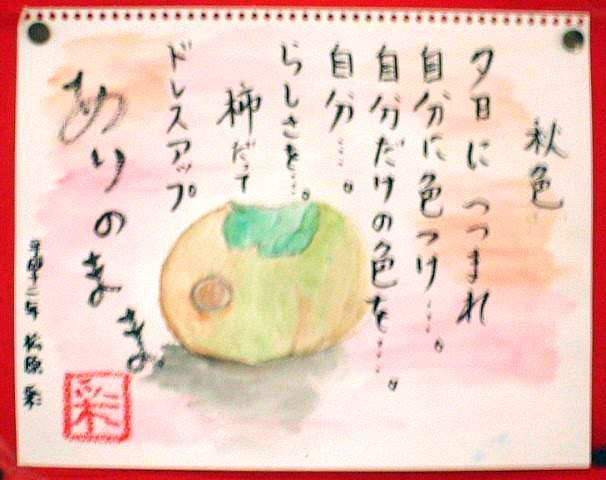 秋色
夕日につつまれ
自分に色つけ…。
自分だけの色を…。
自分…。
らしさを…。
柿だって
ドレスアップ
ありのまま。
松原 彩
彩